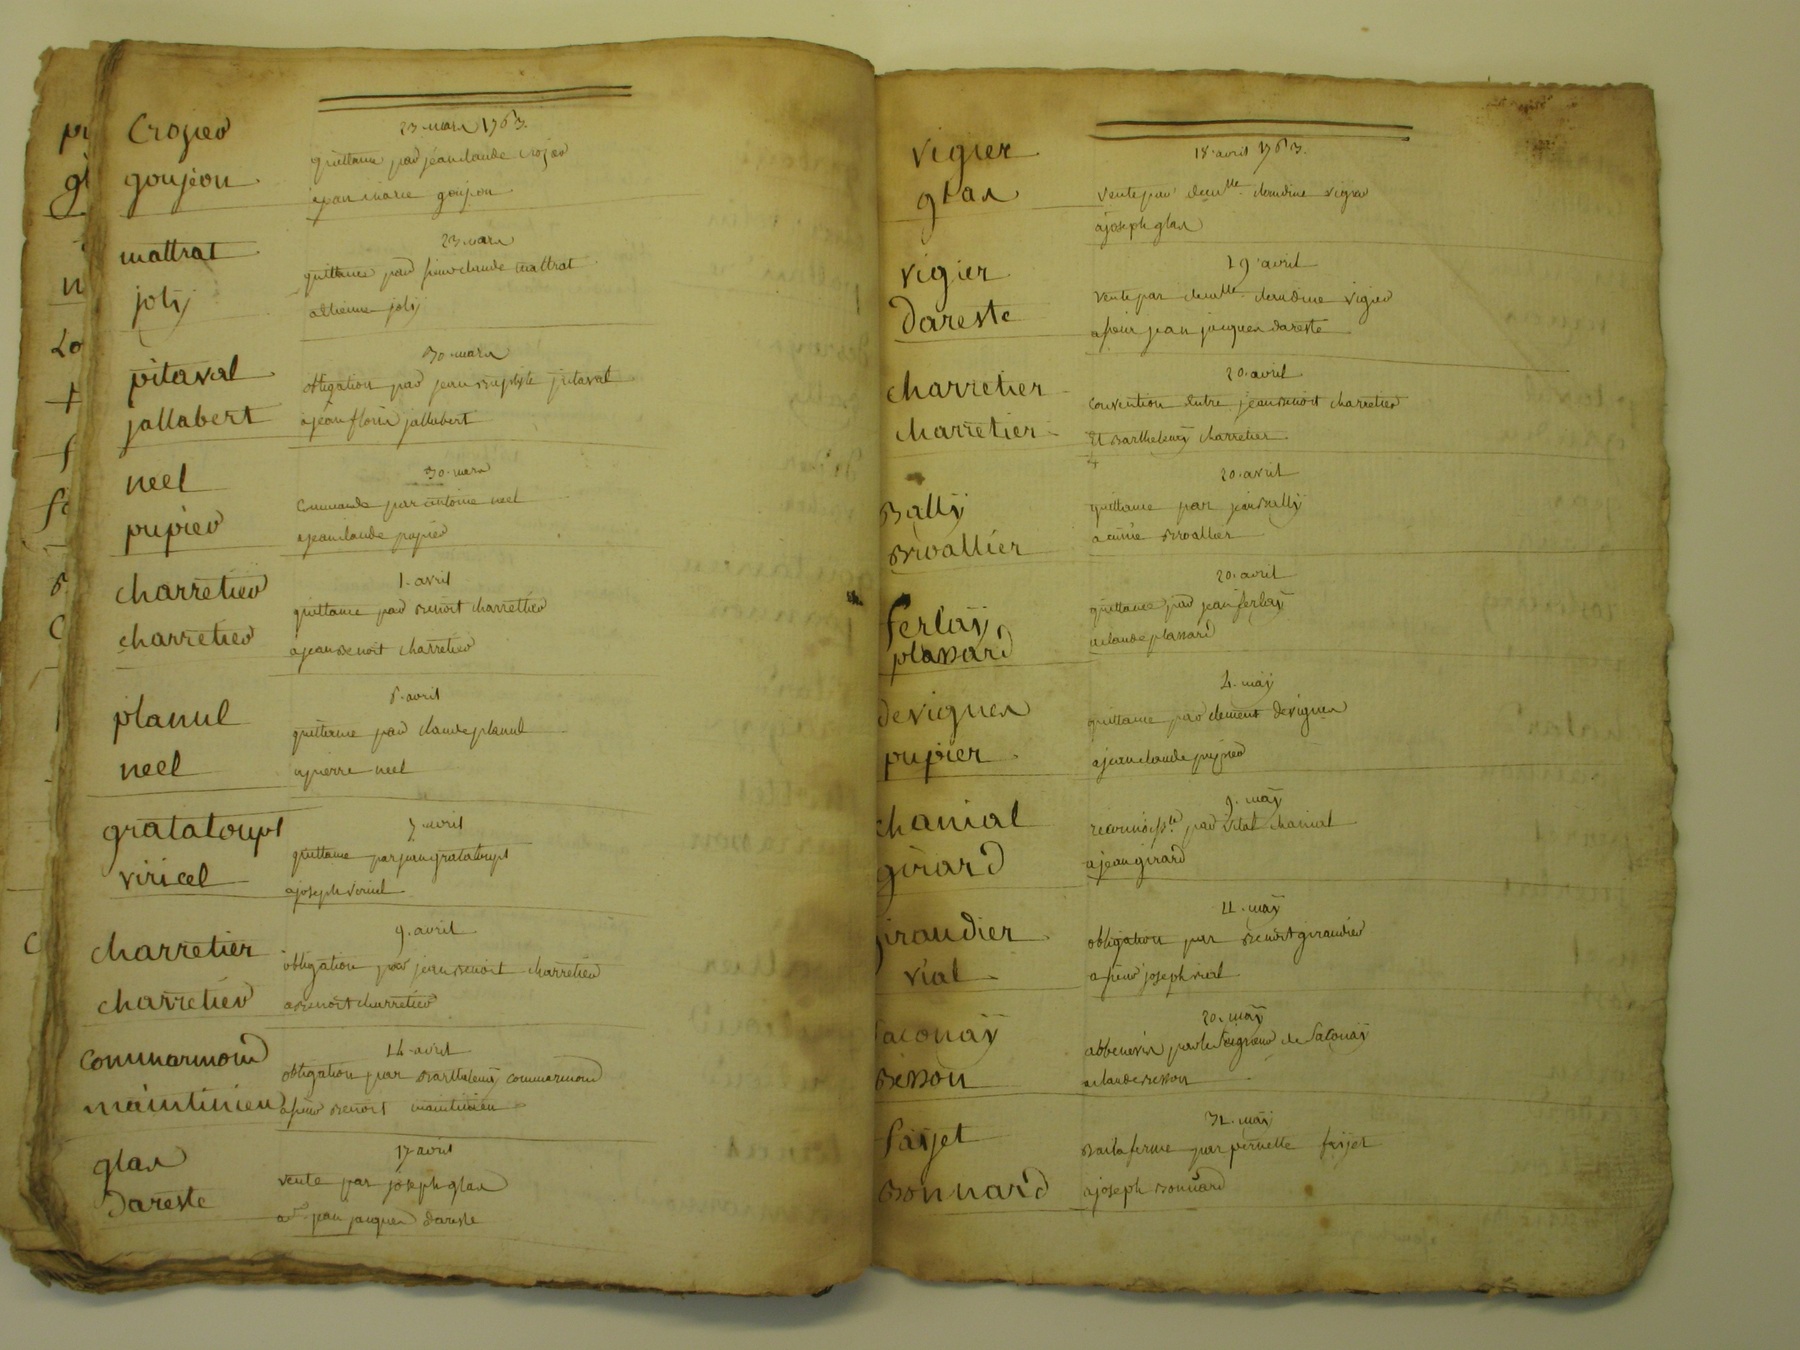 Crozier
goujeon
23 mars 1763.
quittance par jean claude crozer
a jean marie goujon
mattrat
joly
23 mars
quittance par sieur claude mattrat
a etienne joly
pitaval
jallabert
30 mars
obligation par jean Baptiste pitaval
a jean florie jallabert
neel
pupier
30 mars
Commande par antoine neel
a jean claude pupier
charretier
charretier
1. avril
quittance par Benoit charrettier
a jean Benoit charretier
planul
neel
6. avril
quittance par claude planul
a pierre neel
gratatoupt
viricel
7 avril
quittance par jean gratatoupt
a joseph viricel
charretier
charretier
9. avril
obligation par jean Benoit charretier
a Benoit charretier
Commarmond
maintinieu
14 avril
obligation par Barthelemy commarmond
a sieur Benoit maintinieu
glas
Dareste
17 avril
vente par joseph glas
a sr jean jacques dareste
vigier
glas
18 avril 1763.
vente par demlle. claudine vigier
a joseph glas
vigier
Dareste
19 avril
vente par demlle. claudine vigier
a sieur jean jacques dareste
charretier
charretier
20 avril
convention entre jean Benoit charretier
Et Barthelemy charretier
Bally
Brvallier
20. avril
quittance par jean Bally
a aimé Brvallier
ferlaÿ
plassard
20. avril
quittance par jean ferlaÿ
a claude plassard
devignes
pupier
4. maÿ
quittance par clement devignes
a jean claude pupier
chanial
girard
9. maÿ
reconnoiss.ce par vital chanial
a jean girard
giraudier
vial
11. maÿ
obligation par Benoit giraudier
a sieur joseph vial
Saconaÿ
Besson
20. maÿ
abbenevis par le Seigneur de Saconaÿ
a claude Besson
faÿet
Bonnard
31. maÿ
Bail a ferme par pernette faÿet
a joseph Bonnard